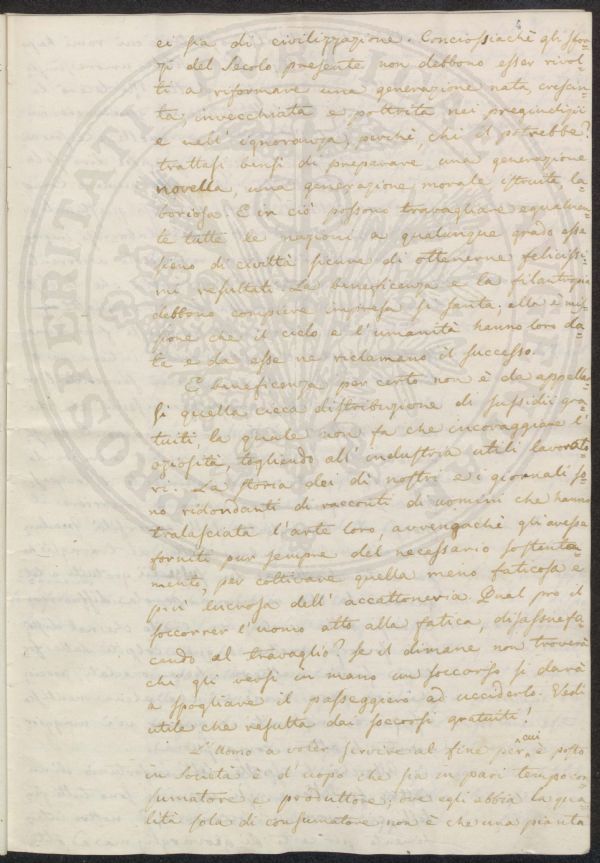 ci sia di civilizzazione. Conciossiachè gli sfor-
zi del secolo presente non debbono esser rivol-
ti a riformare una generazione nata, cresciu-
ta, invecchiata e poltrita nei pregiudizii
e nell'ignoranza, perchè, chi il potrebbe?
trattasi bensì di preparare una generazione
novella, una generazione morale istruita, la-
boriosa. E in ciò possono travagliare egualmen-
te tutte le nazioni a qualunque grado esse
sieno di civiltà sicure di ottenerne felicissi-
mi resultati. La beneficenza e la filantropia
debbono compiere impresa sì santa; ella è mis-
sione che il cielo e l'umanità hanno loro da-
ta e da esse ne reclamano il successo.
E beneficenza per certo non è da appellar-
si quella cieca distribuzione di sussidii gra-
tuiti, la quale non fa che incoraggiare l'
oziosità, togliendo all'industria utili lavorato-
ri. La storia dei dì nostri e i giornali so-
no ridondanti di racconti di uomini che hanno
tralasciata l'arte loro, avvengachè gli avesse
forniti pur sempre del necessario sostenta-
mento, per coltivare quella meno faticosa e
più lucrosa dell'accattoneria. Qual pro il
soccorrer l'uomo atto alla fatica, disassuefa-
cendo al travaglio? Se il dimane non troverà
chi gli versi in mano un soccorso si darà
a spogliare il passeggiero ad ucciderlo. Vedi
utile che resulta dai soccorsi gratuiti!
L'Uomo a voler servire al fine per cui è posto
in società è d'uopo che sia in pari tempo con-
sumatore e produttore; ove egli abbia la qua-
lità sola di consumatore non è che una pianta
PROSPERITATI PUBLICAE